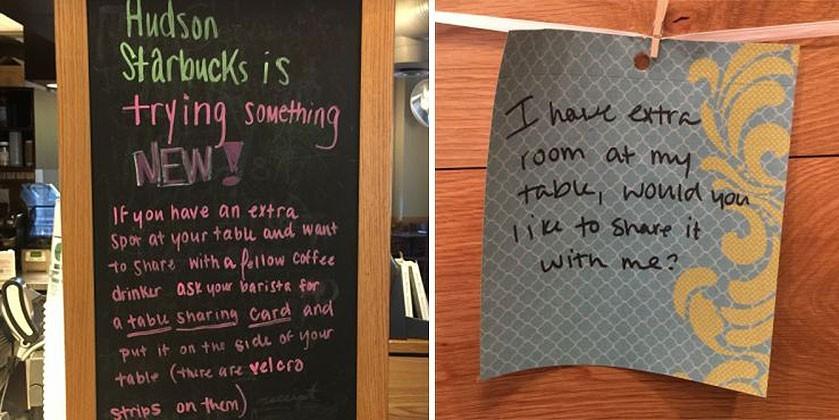 Hudson
Starbucks is
trying something
NEW!
If you have an extra
spot at your table and want
to share with a fellow coffee
drinker ask your barista for
a table sharing card and
put it on the side of your
table (there are velcro
strips on them)
I have extra
room at my
table, would you
like to share it
with me?